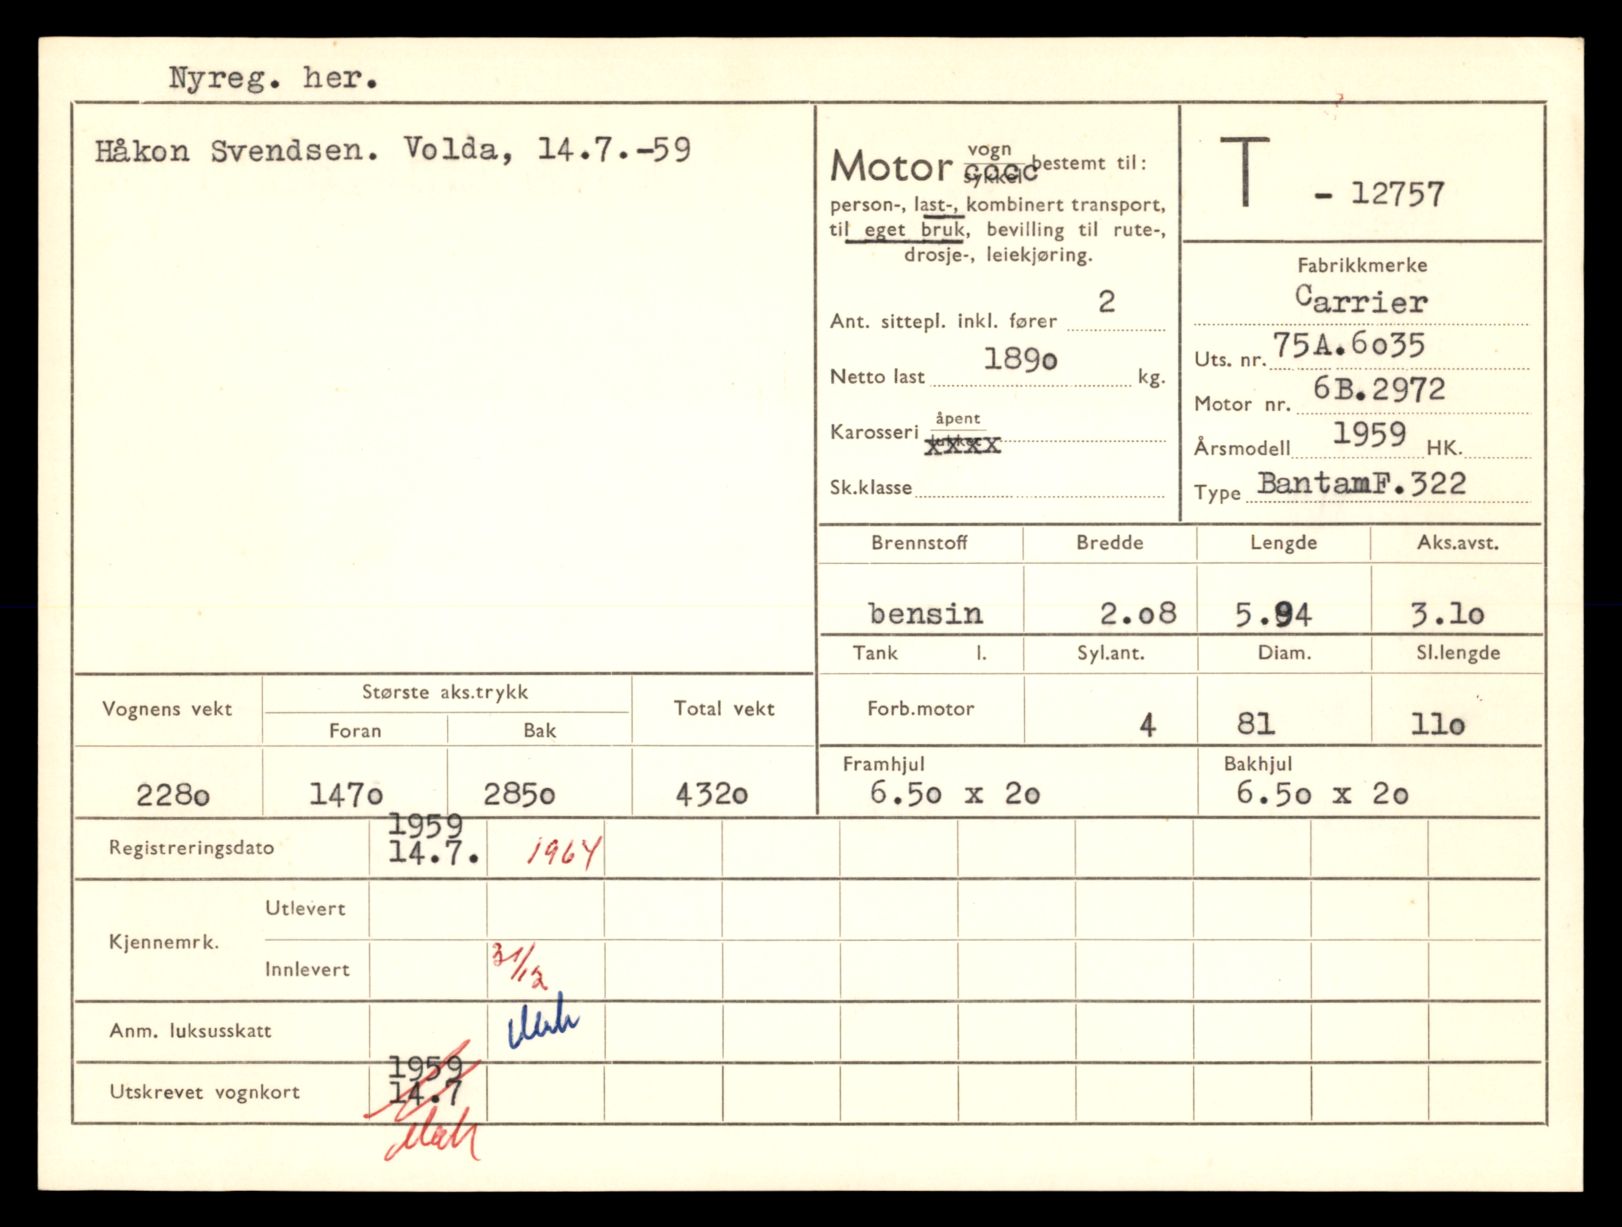 Nyreg. her.
Håkon Svendsen. Volda, 14.7.-59
Motor vogn sykkel bestemt til:
person-, last-, kombinert transport,
til eget bruk, bevilling til rute-,
drosje-, leiekjøring.
Ant. sittepl. inkl. fører 2
Netto last 1890 kg.
Karosseri åpent lukket xxxx
Sk.klasse
T - 12757
Fabrikkmerke
Carrier
Uts. nr. 75A.6035
Motor nr. 6B.2972
Årsmodell 1959 HK.
Type BantamF.322
Brennstoff Bredde Lengde Aks.avst.
bensin 2.08 5.94 3.10
Tank l. Syl.ant. Diam. Sl.lengde
Forb.motor 4 81 110
Framhjul Bakhjul
6.50 x 20 6.50 x 20
Vognens vekt Største aks.trykk Total vekt
Foran Bak
2280 1470 2850 4320
Registreringsdato 1959 14.7. 1964
Kjennemrk. Utlevert
Innlevert 31/12
Anm. luksusskatt
Utskrevet vognkort 1959 14.7